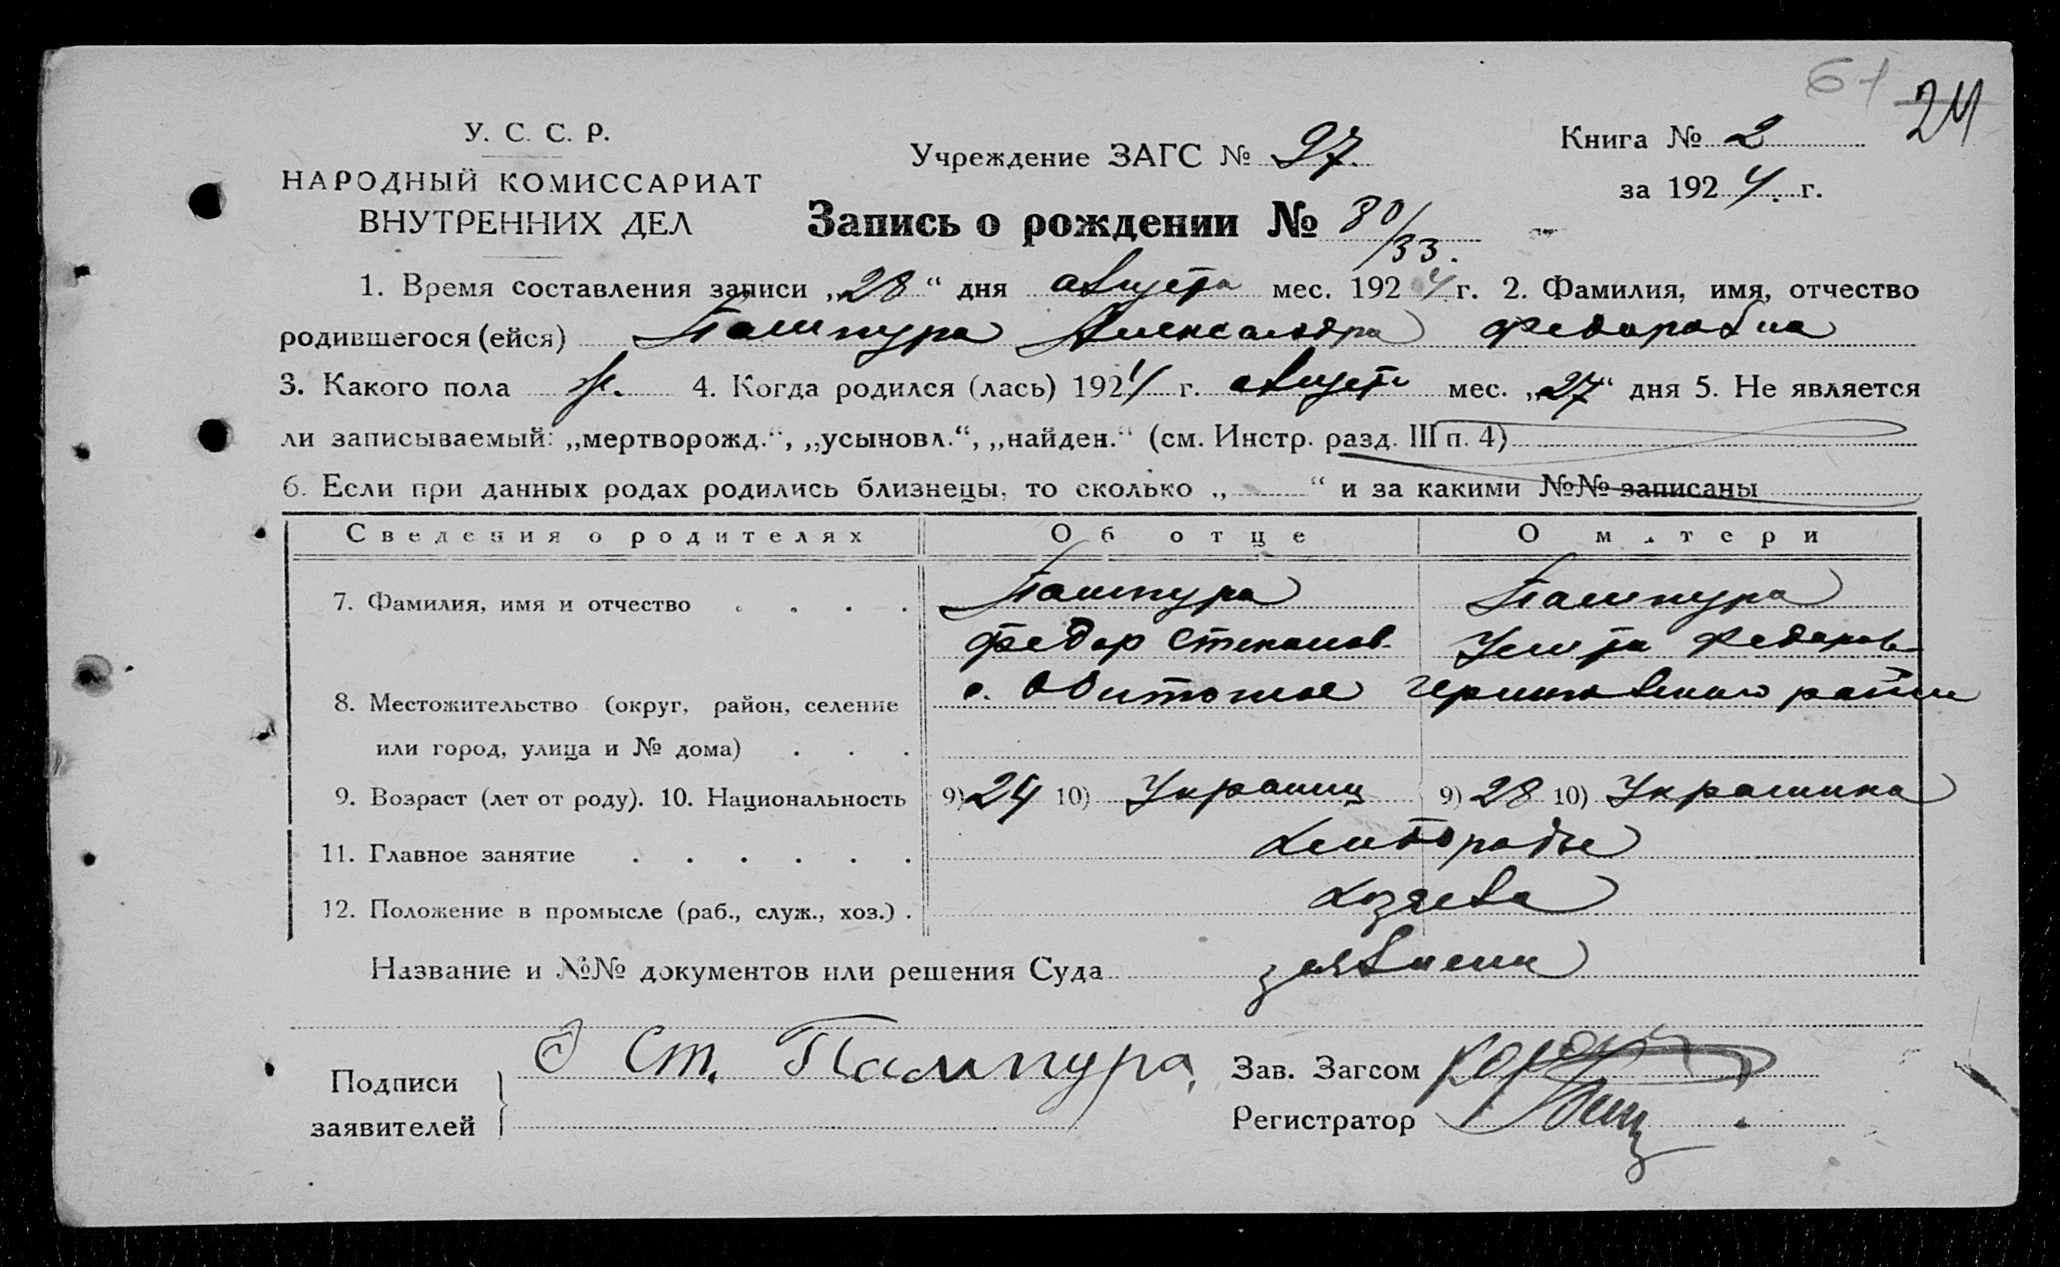 61 24
У. С. С. Р.
НАРОДНЫЙ КОМИССАРИАТ
ВНУТРЕННИХ ДЕЛ
Учреждение ЗАГС № 27.
Книга № 2
за 1924. г.
Запись о рождении № 80/33.
1. Время составления записи „28“ дня августа мес. 1924 г. 2. Фамилия, имя, отчество
родившегося (ейся) Пампура Александра Федоровна
3. Какого пола ж. 4. Когда родился (лась) 1924 г. август мес. „27“ дня 5. Не является
ли записываемый: „мертворожд.“, „усыновл.“, „найден.“ (см. Инстр. разд. III п. 4)
6. Если при данных родах родились близнецы, то сколько „ “ и за какими №№ записаны
Сведения о родителях Об отце О матери
7. Фамилия, имя и отчество . . . . Пампура Пампура
Федор Степанов. Федоров
8. Местожительство (округ, район, селение с. района
или город, улица и № дома) . . .
9. Возраст (лет от роду). 10. Национальность 9) 24 10) Украинц 9) 28 10) Украинка
11. Главное занятие . . . . . . хлибороды
12. Положение в промысле (раб., служ., хоз.) . хозяева
Название и №№ документов или решения Суда заявлении
Подписи
заявителей
Ст. Пампура,
Зав. Загсом
Регистратор